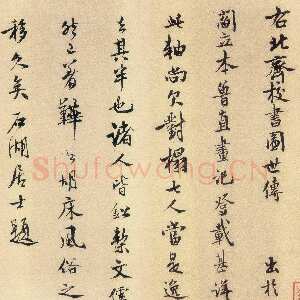 右北齊校書圖世傳出於
閻立本魯直畫記登載甚詳
此軸尚欠對榻七人當是逸
去其半也諸人皆鉛槧文儒
然已著鞾坐胡床風俗之
移久矣石湖居士題
Shufawang.CN